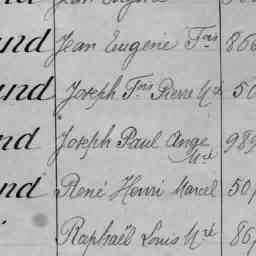 and Jean Eugène Fois 866
and Joseph Fois Pierre Mé 50
nd Joseph Paul Ange 989
Mel
nd René Henri Marcel 501
Raphaël Louis Mé 86